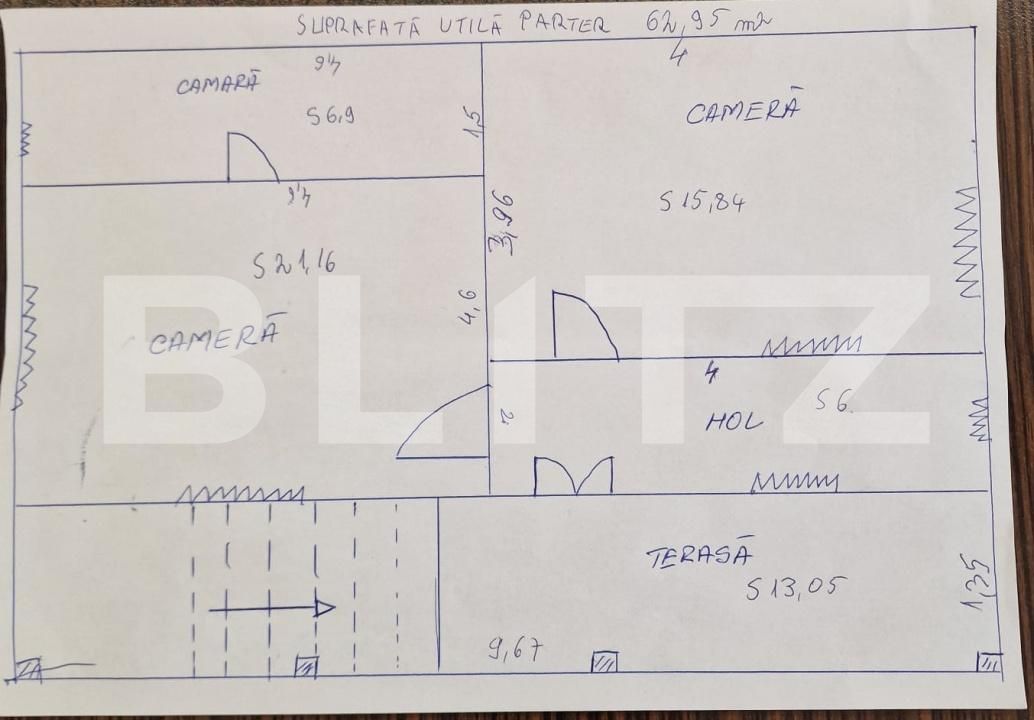 SUPRAFAȚĂ UTILĂ PARTER 62,95 m2
4,6
4
CAMARĂ
S 6,9
1,5
CAMERĂ
4,6
3,96
S 15,84
S 21,16
4,6
CAMERĂ
4
S 6
HOL
2
TERASĂ
S 13,05
1,35
9,67
BLITZ